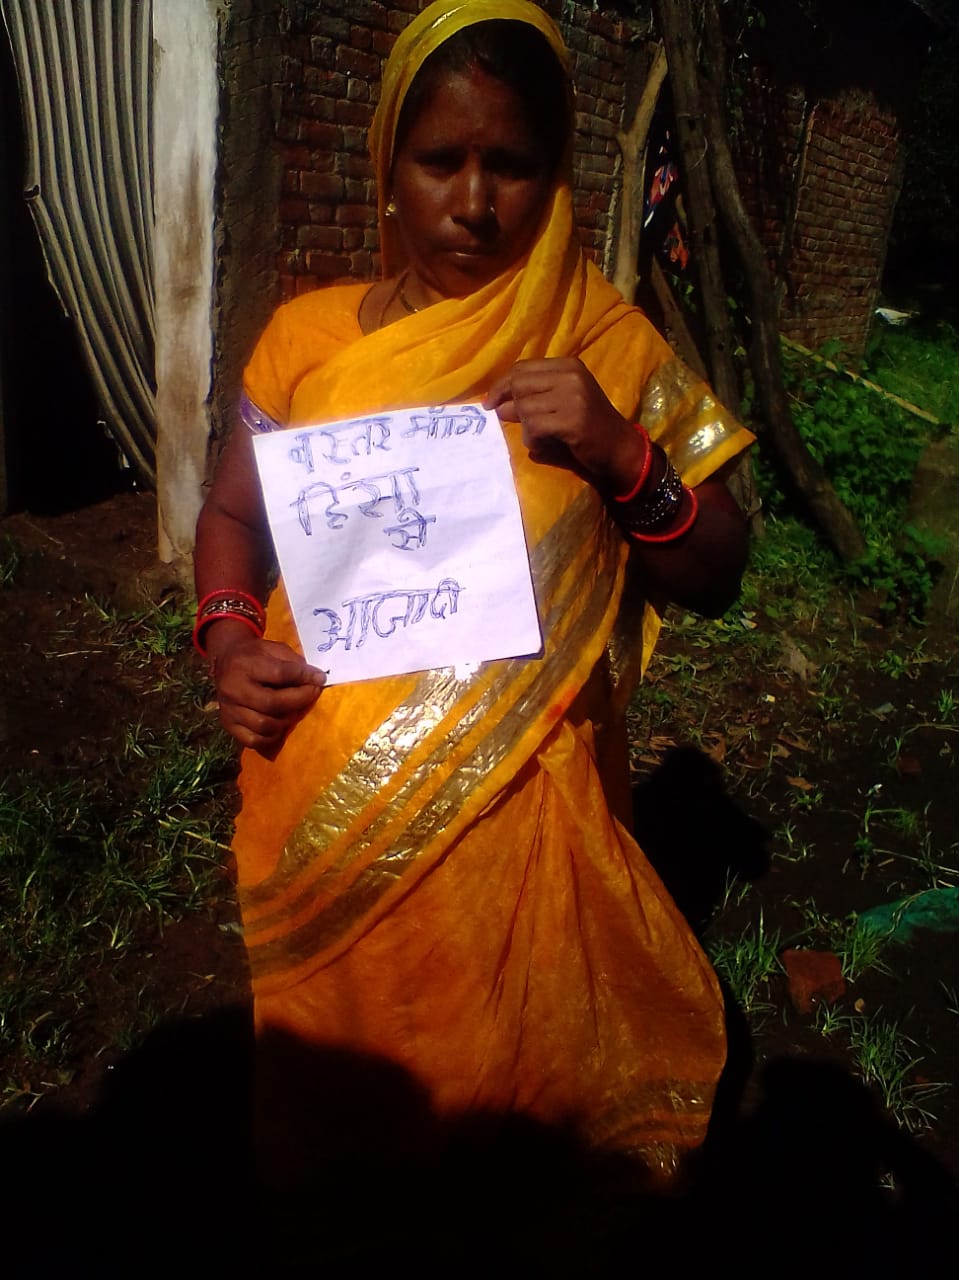 बस्तर माँगे
हिंसा
से
आजादी